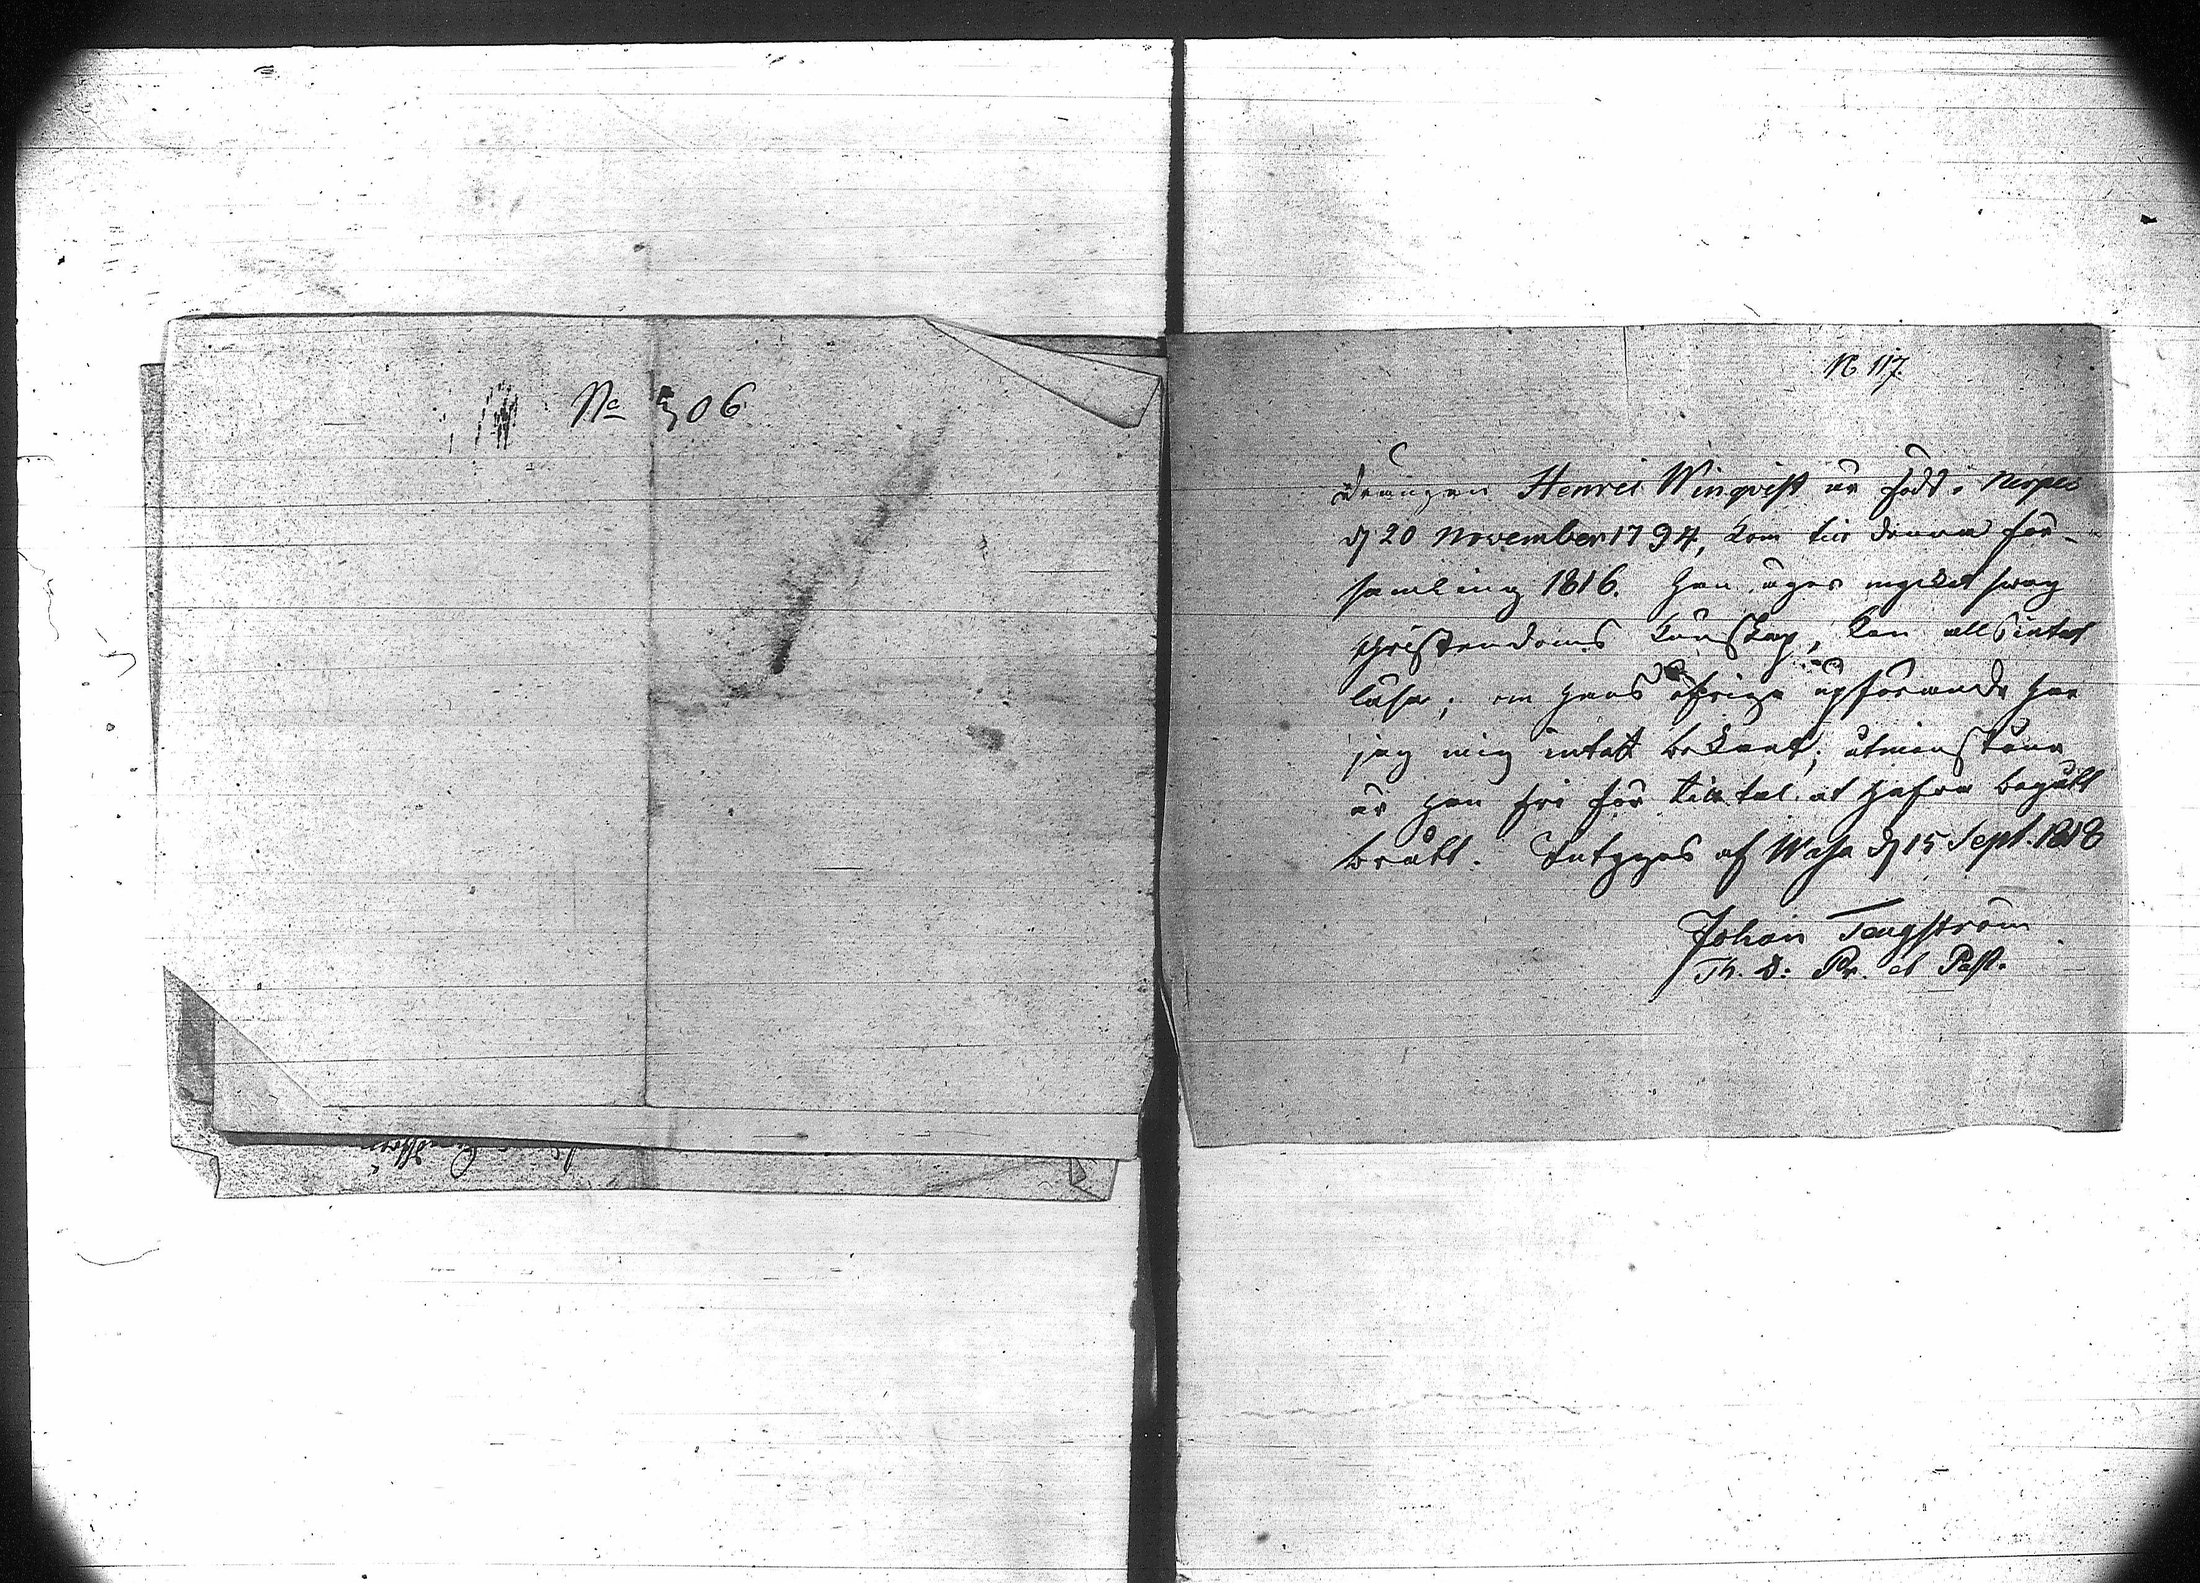 No 306
N 117.
Drängen Henric Winqvist är född i Nerpes
d 20 November 1794, kom till denna för-
samling 1816. Han äger mycket swag
Christendoms kunskap, kan alls intet
läsa; om hans öfriga upförande har
jag mig intet bekant; åtminstone
är han fri för tiltal at hafva begått
brått. Intygas af Wasa d 15 Sept. 1818
Johan Tengström
Th. D: Pr. et Past.